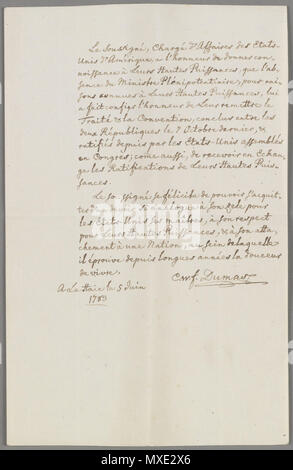 Le soussigné, Chargé d'Affaires des Etats-
Unis d'Amérique, a l'honneur de donner con-
noissance à Leurs Hautes Puissances, que l'ab-
sence du Ministre Plénipotentiaire, pour rai-
sons connues à Leurs Hautes Puissances, lui
a fait confier l'honneur de Leur remettre le
Traité & la Convention, conclus entre les
deux Républiques le 7 Octobre dernier, &
ratifiés depuis par les Etats-Unis assemblés
en Congrès; come aussi, de recevoir en échan-
ge les Ratifications de Leurs Hautes Puis-
sances.
Le soussigné se félicite de pouvoir s'acquit-
ter à son zele, pour
les Etats-Unis à son respect
pour Leurs Hautes Puissances, & à son atta-
chement à une Nation, au sein de laquelle
il éprouve depuis longues années la douceur
de vivre.
C.w.f. Dumas
A La Haie le 5 Juin
1783
alamy
MXE2X6
www.alamy.com